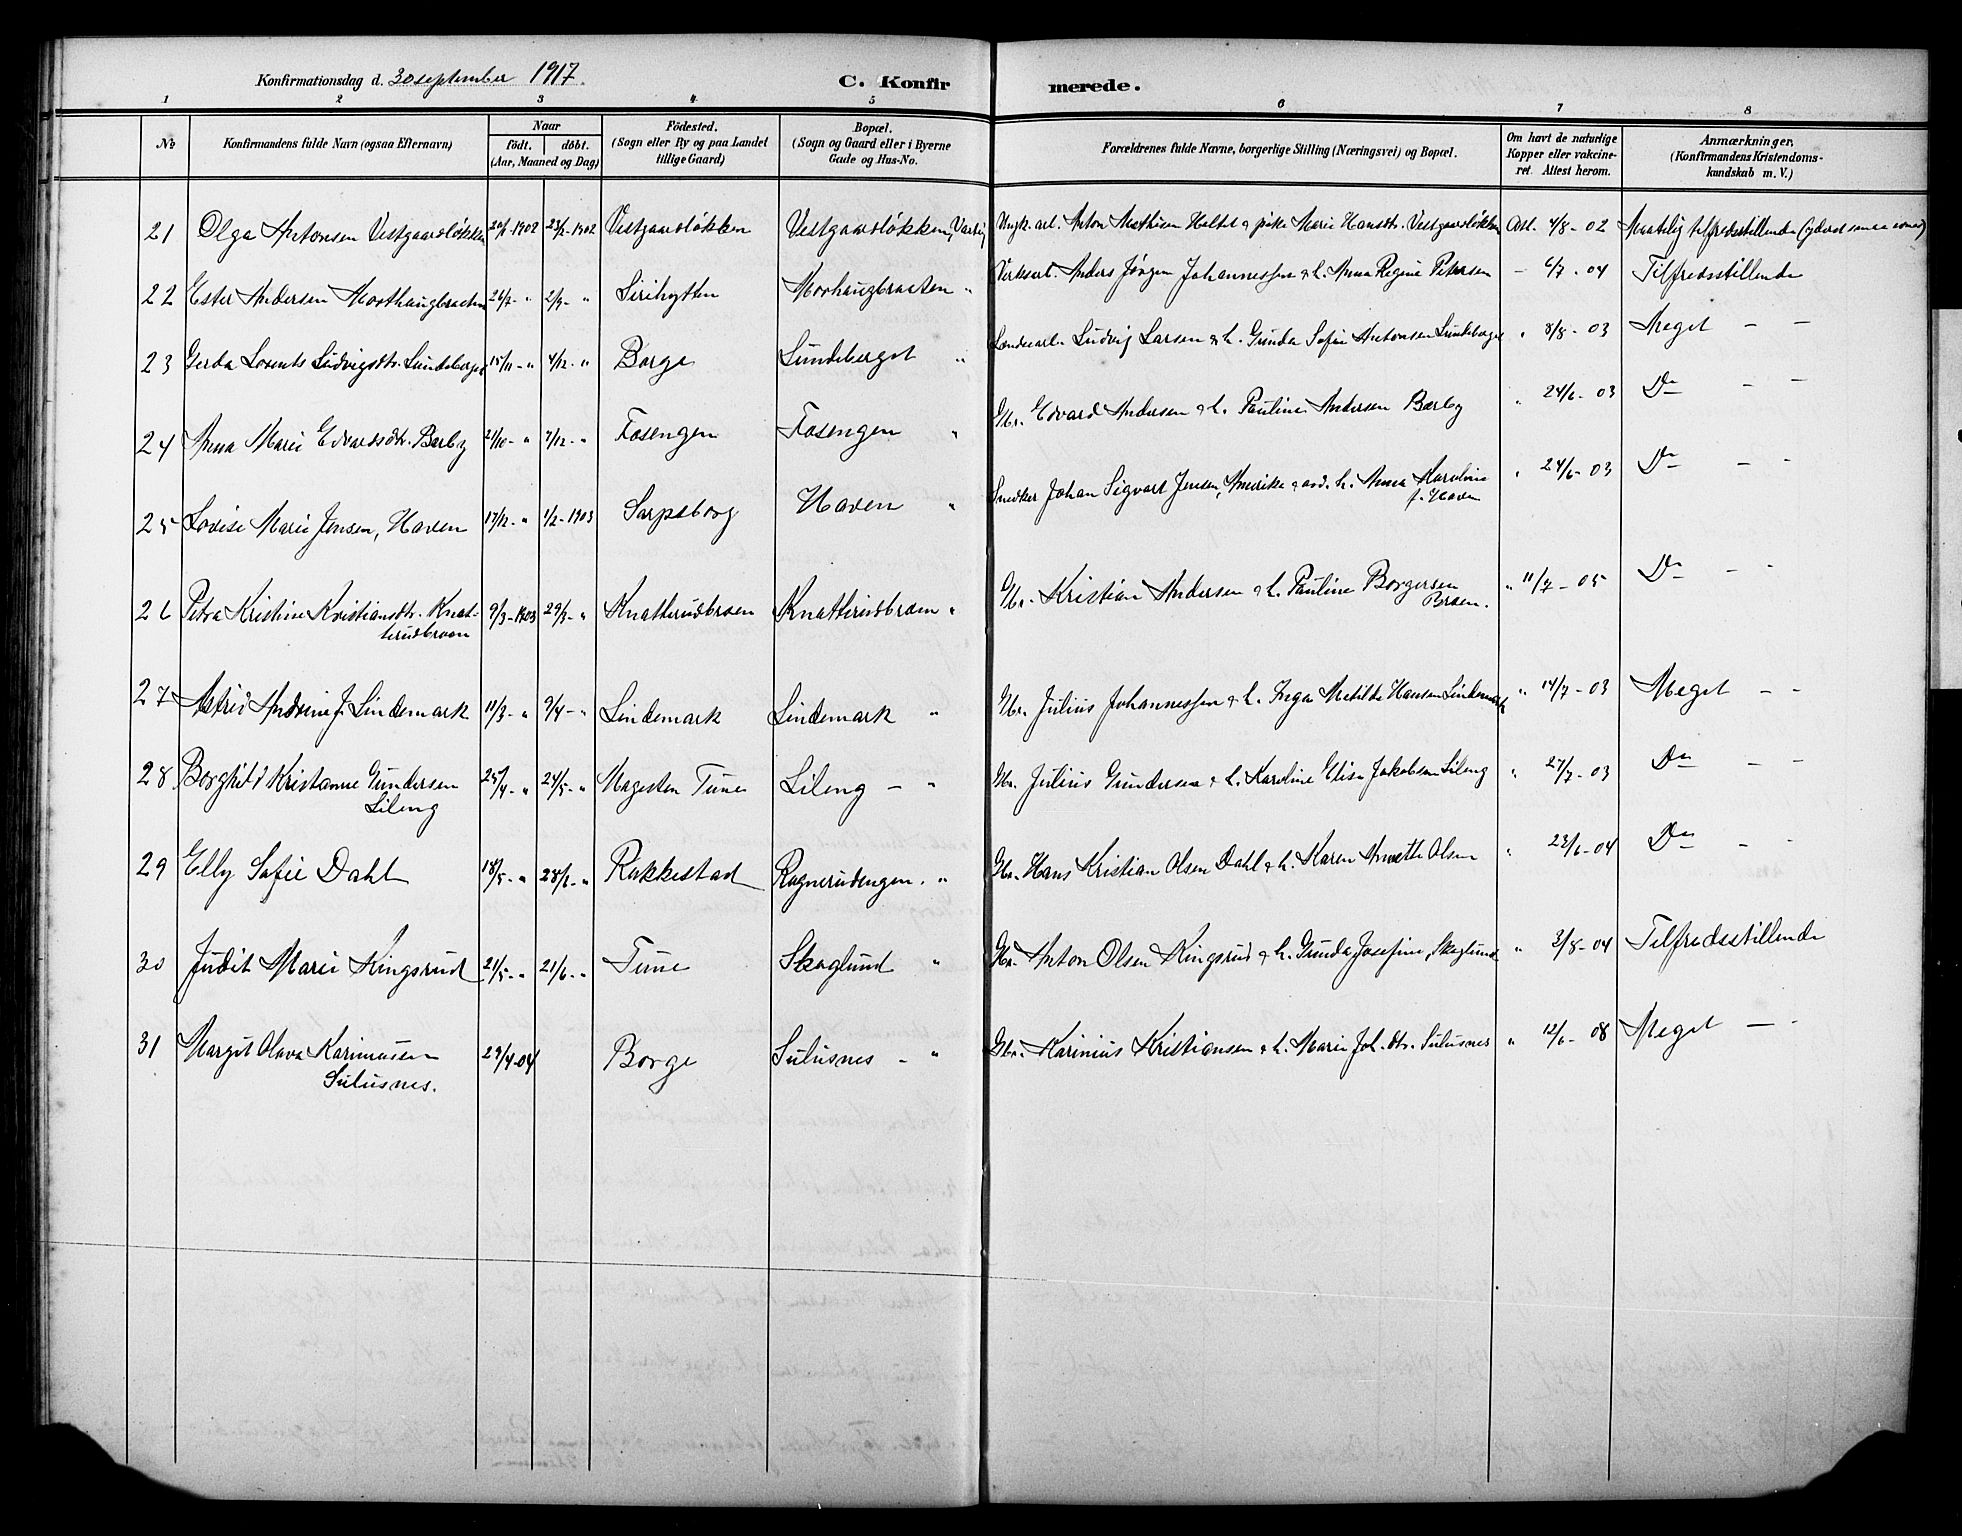 Konfirmationsdag d. 30 september 1917. C. Konfirmerede.
1 2 3 4 5 6 7 8
№ Konfirmandens fulde Navn (ogsaa Efternavn) Naar födt. döbt. (Aar, Maaned og Dag) Födested. (Sogn eller By og paa Landet tillige Gaard) Bopæl. (Sogn og Gaard eller i Byerne Gade og Hus-No. Forældrenes fulde Navne, borgerlige Stilling (Næringsvei) og Bopæl. Om havt de naturlige Kopper eller vakcineret. Attest herom. Anmærkninger, (Konfirmandens Kristendomskundskab m. V.)
21 Olga Antonsen Vestgaardsløkken 1902 23/2-1902 Vestgaardsløkken Vestgaardsløkken, Varteig Ungk. arb. Anton Mathisen Heltet & pike Marie Hansdtr. Vestgaardsløkken Att. 4/8-02 Maatelig tilfredsstillende
22 Ester Andersen Morthaugbraaten 26/7-" 2/9-" Sirihytten Morhaugbraaten " Verksarb. Anders Jørgen Johannessen & h. Anna Regine Petersen - 6/7-04 Tilfredsstillende
23 Gerda Lorents Ludvigsdtr. Lundeberget 15/11-" 4/12-" Borge Lundeberget " Ludvig Larsen & h. Gunda Sofie Antonsen Lundeberget " 8/8-03 Meget - -
24 Anna Marie Edvardsdtr. Barby 21/10-" 7/12-" Fosengen Fosengen " Gbr. Edvard Andersen & h. Pauline Andersen Barby " 24/6-03 Do - -
25 Lovise Marie Jensen, Haven 17/12-" 1/2-1903 Sarpsborg Haven " Snedker Johan Sigvart Jensen, Amerika & avd. h. Anna Karoline f. Haven " 24/6-03 Do - -
26 Petra Kristine Kristiansdtr. Knatterudbraen 9/3-1903 29/3-" Knatterudbraen Knatterudbraen " Gbr. Kristian Andersen & h. Pauline Borgersen Braen. " 11/7-05 Do - -
27 Astrid Andrine J. Lindemark 10/3-" 9/4-" Lindemark Lindemark " Gbr. Julius Johannessen & h. Inga Matilde Hansen Lindemark " 14/7-03 Meget - -
28 Borghild Kristanne Gundersen Lileng 25/4-" 24/5-" Magesten Tune Lileng - " Gbr. Julius Gundersen & h. Karoline Elise Jakobsen Lileng " 27/7-03 Do - -
29 Elly Sofie Dahl 18/5-" Rakkestad Ragnerudengen. " Gbr. Hans Kristian Olsen Dahl & h. Karen Annette Olsen " 22/6-04 Do - -
30 Judit Marie Kingsrud 21/5-" 21/6-" Tune Skoglund " Gbr. Anton Olsen Kingsrud & h. Gunda Josefine, Skoglund " 3/8-04 Tilfredsstillende
31 Margit Olava Kariniussen Sulusnes. 29/4-04 Borge Sulusnes - " Gbr. Karinius Kristiansen & h. Marie Joh. dtr. Sulusnes " 12/6-08 Meget - -